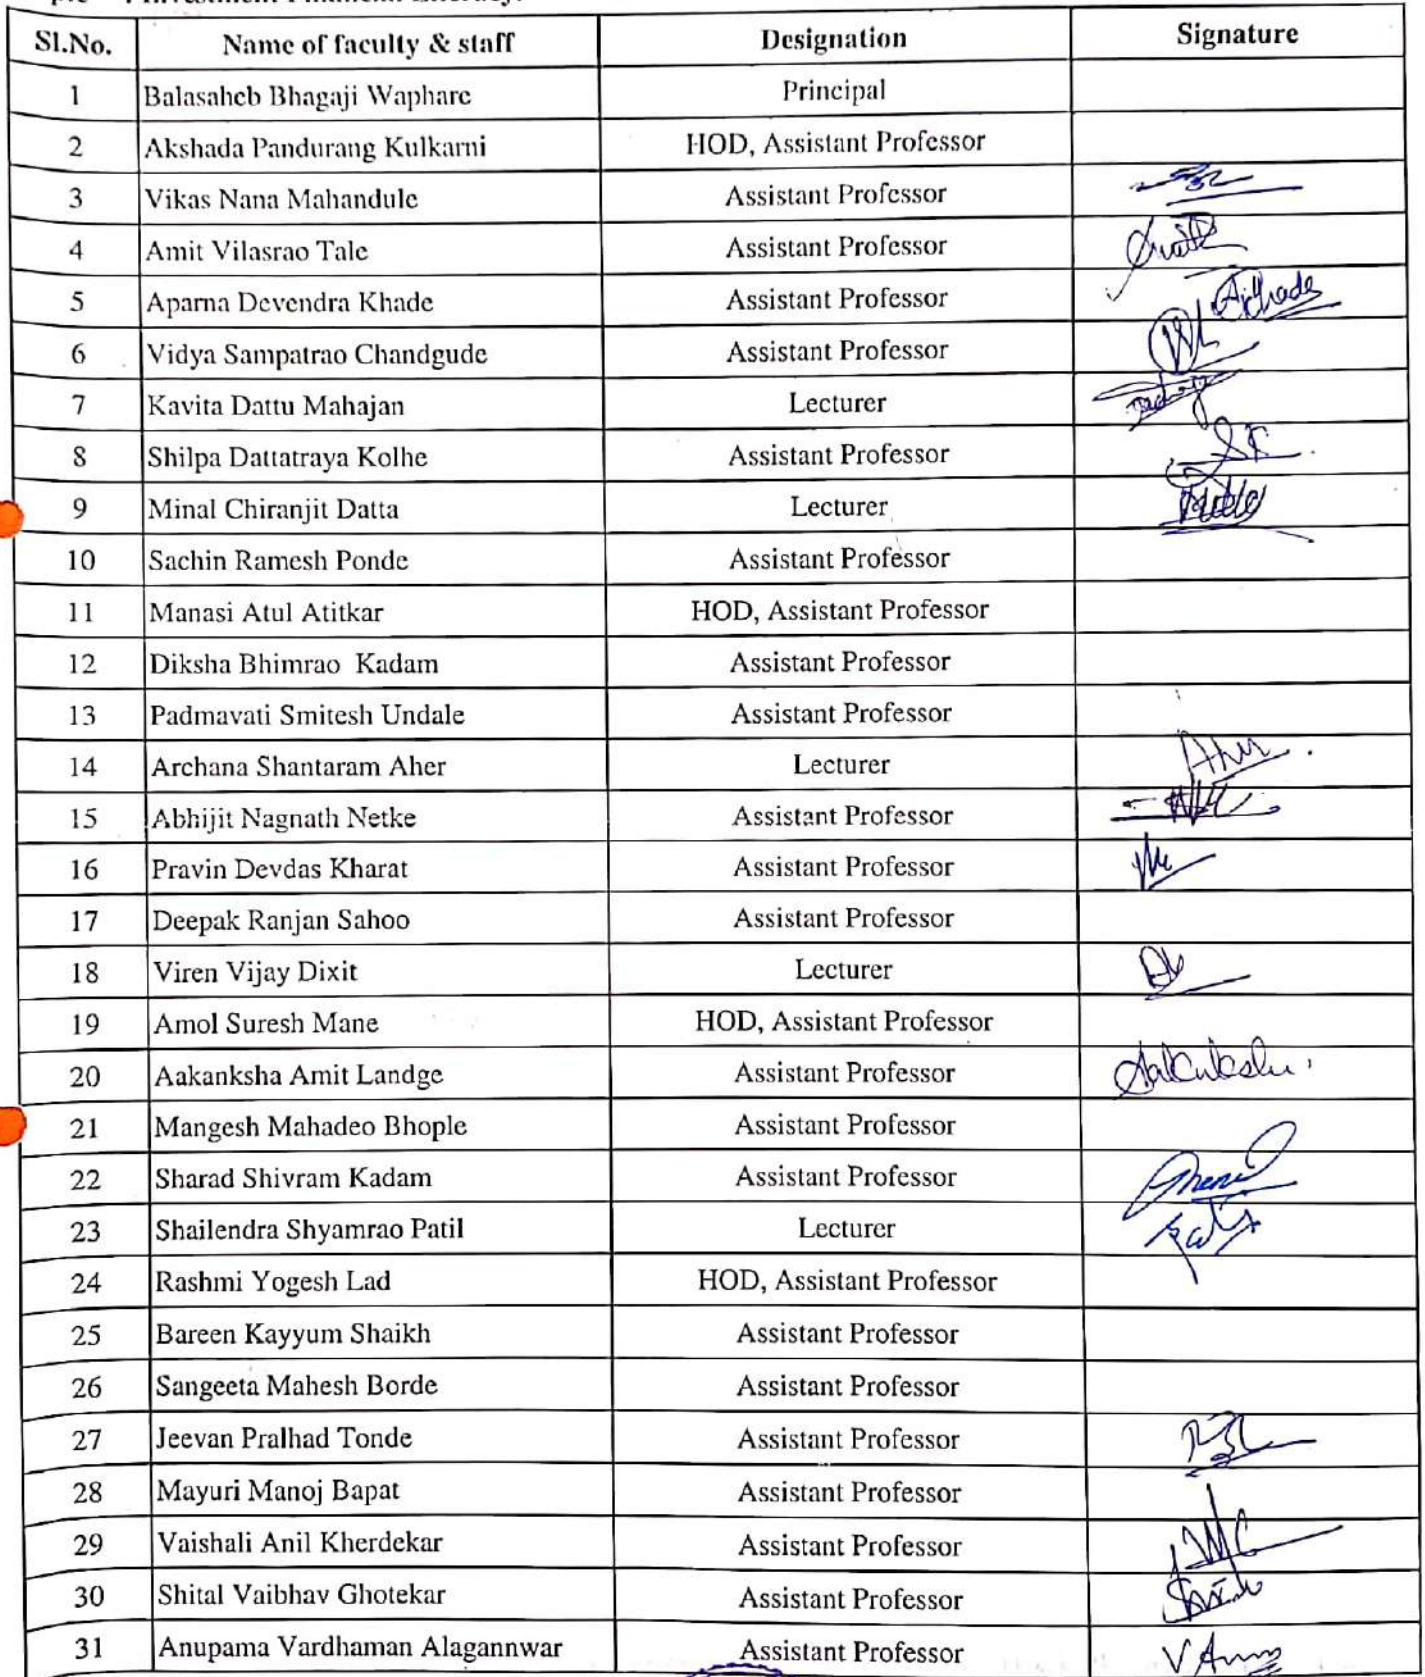 Investment Financial Literacy.
Sl.No. Name of faculty & staff Designation Signature
1 Balasaheb Bhagaji Waphare Principal
2 Akshada Pandurang Kulkarni HOD, Assistant Professor
3 Vikas Nana Mahandule Assistant Professor
4 Amit Vilasrao Tale Assistant Professor
5 Aparna Devendra Khade Assistant Professor
6 Vidya Sampatrao Chandgude Assistant Professor
7 Kavita Dattu Mahajan Lecturer
8 Shilpa Dattatraya Kolhe Assistant Professor
9 Minal Chiranjit Datta Lecturer
10 Sachin Ramesh Ponde Assistant Professor
11 Manasi Atul Atitkar HOD, Assistant Professor
12 Diksha Bhimrao Kadam Assistant Professor
13 Padmavati Smitesh Undale Assistant Professor
14 Archana Shantaram Aher Lecturer
15 Abhijit Nagnath Netke Assistant Professor
16 Pravin Devdas Kharat Assistant Professor
17 Deepak Ranjan Sahoo Assistant Professor
18 Viren Vijay Dixit Lecturer
19 Amol Suresh Mane HOD, Assistant Professor
20 Aakanksha Amit Landge Assistant Professor
21 Mangesh Mahadeo Bhople Assistant Professor
22 Sharad Shivram Kadam Assistant Professor
23 Shailendra Shyamrao Patil Lecturer
24 Rashmi Yogesh Lad HOD, Assistant Professor
25 Bareen Kayyum Shaikh Assistant Professor
26 Sangeeta Mahesh Borde Assistant Professor
27 Jeevan Pralhad Tonde Assistant Professor
28 Mayuri Manoj Bapat Assistant Professor
29 Vaishali Anil Kherdekar Assistant Professor
30 Shital Vaibhav Ghotekar Assistant Professor
31 Anupama Vardhaman Alagannwar Assistant Professor